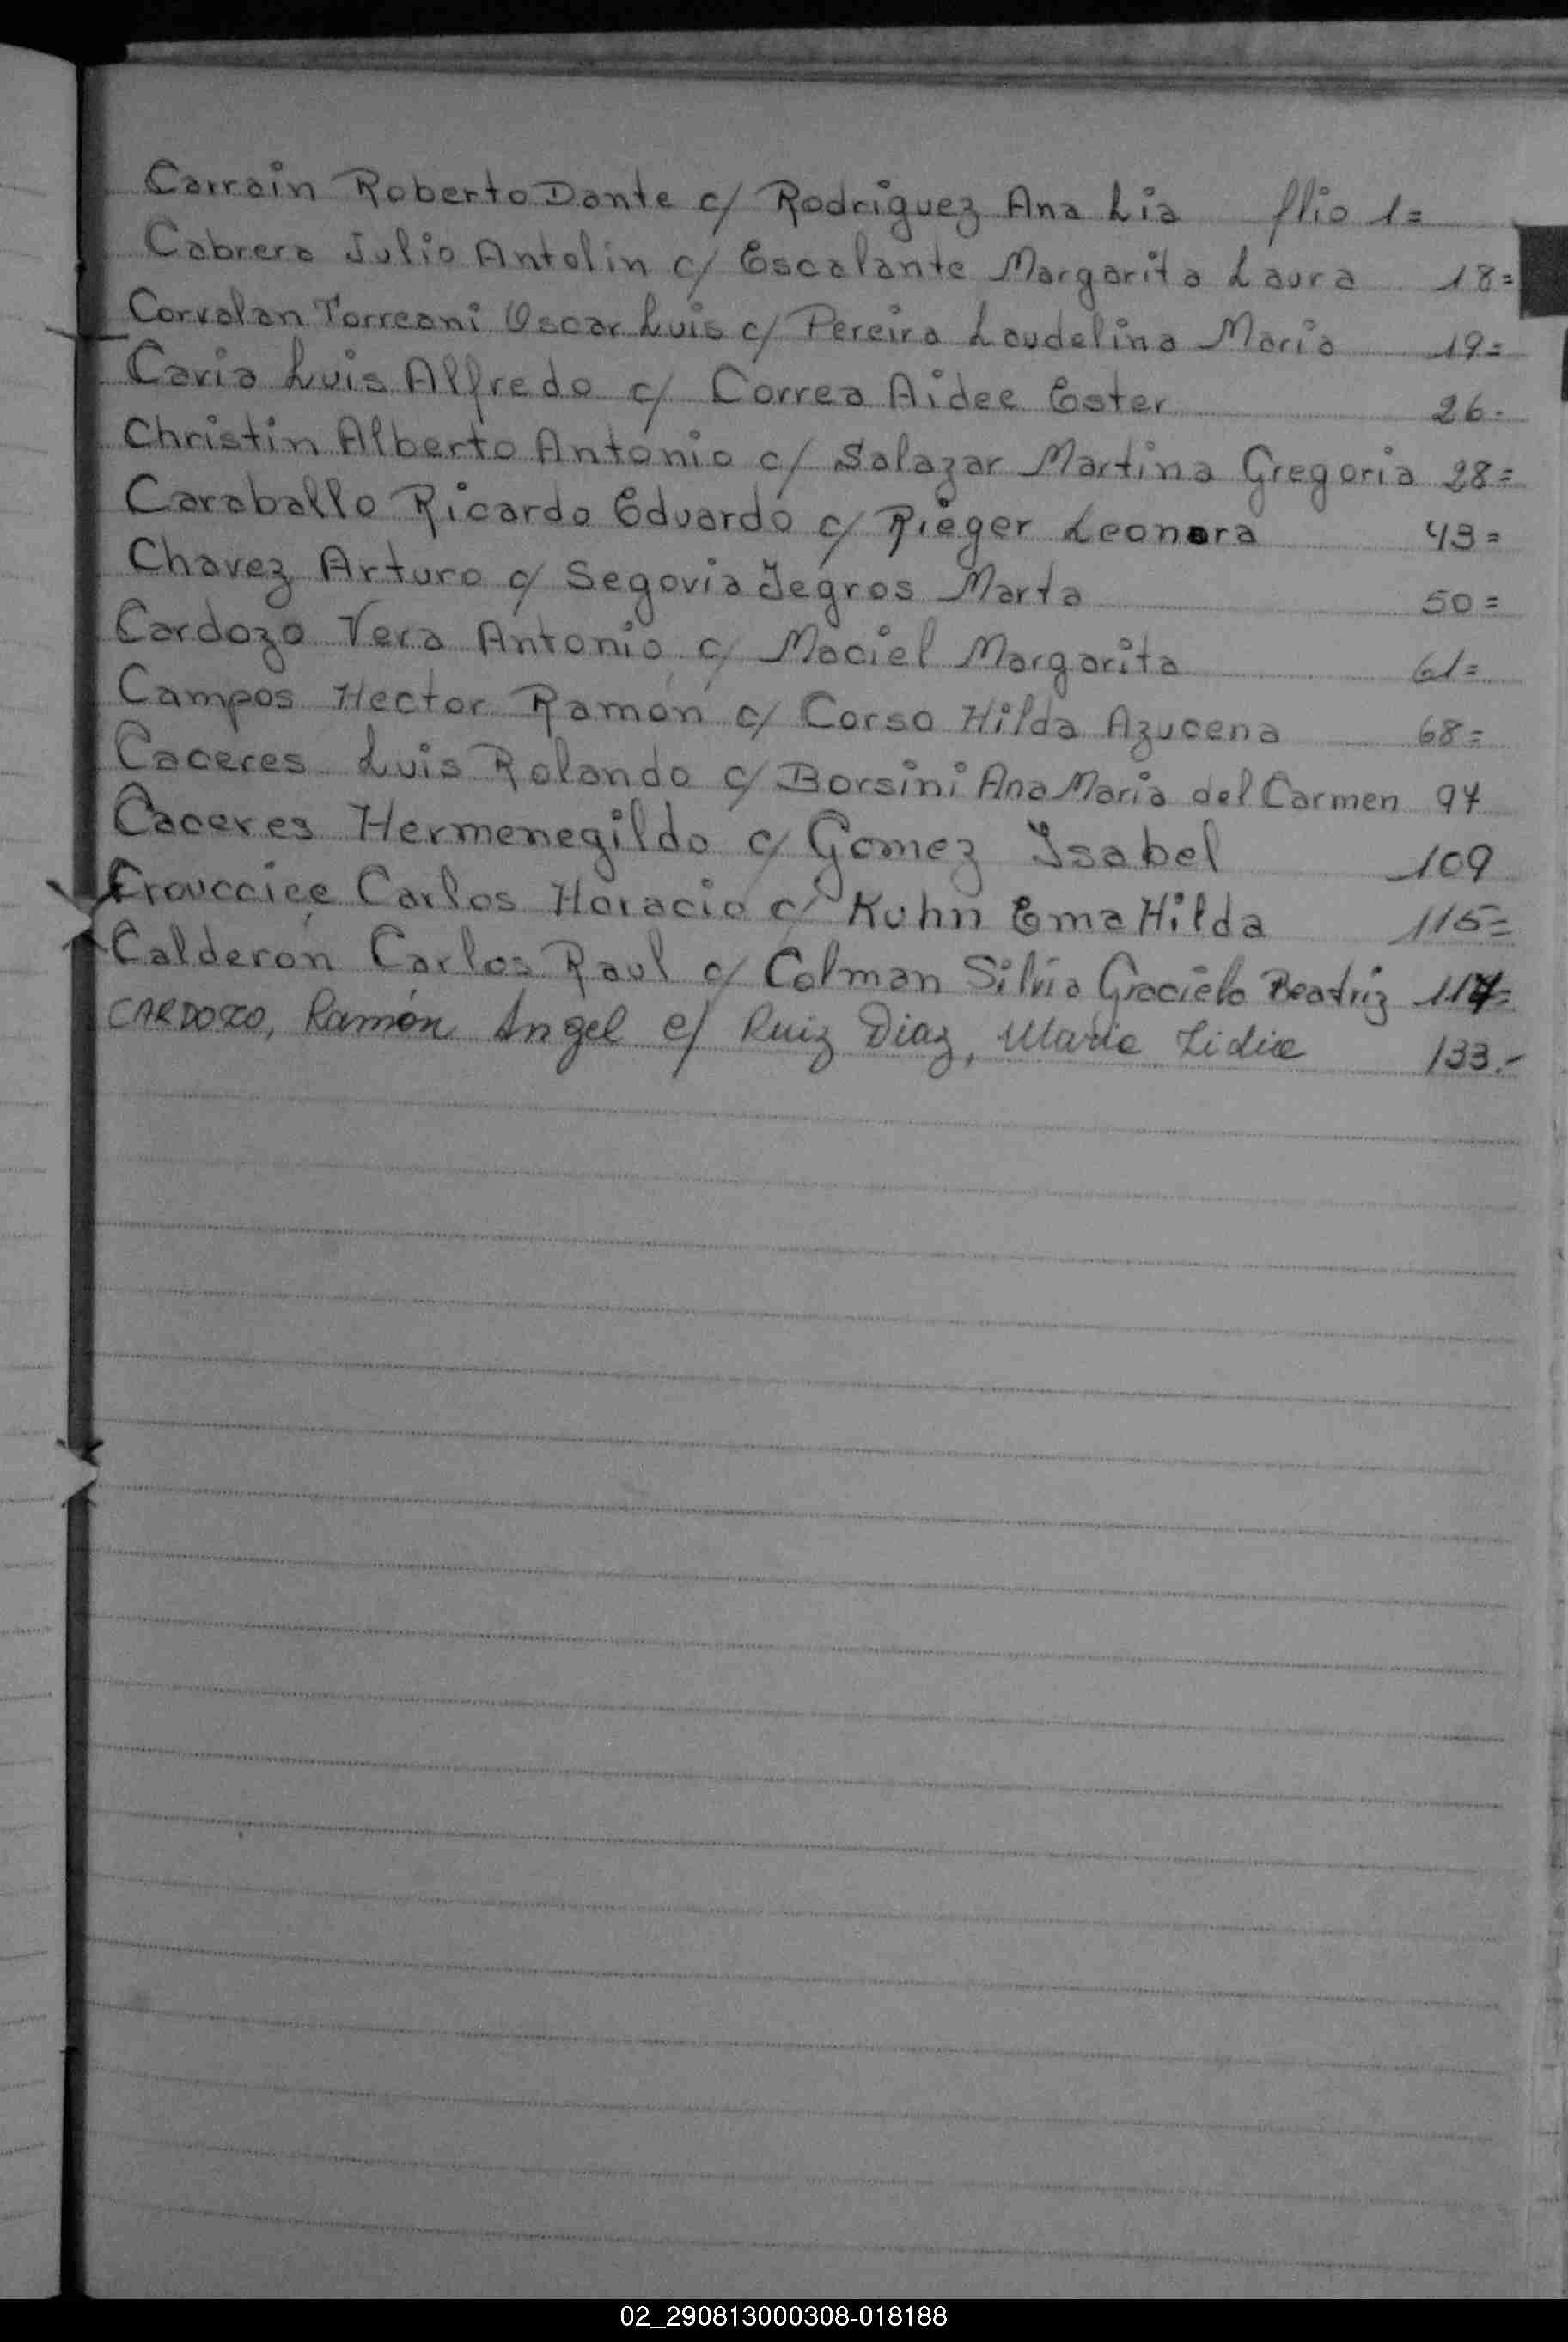 Carrain Roberto Dante c/ Rodriguez Ana Lia flio 1=
Cabrera Julio Antolin c/ Escalante Margarita Laura 18=
Corvalan Torreani Oscar Luis c/ Pereira Laudelina Maria 19=
Caria Luis Alfredo c/ Correa Aidee Ester 26.
Christin Alberto Antonio c/ Salazar Martina Gregoria 28=
Caraballo Ricardo Eduardo c/ Rieger Leonora 43=
Chavez Arturo c/ Segovia Jegros Marta 50=
Cardozo Vera Antonio c/ Maciel Margarita 61=
Campos Hector Ramón c/ Corso Hilda Azucena 68=
Caceres Luis Rolando c/ Borsini Ana Maria del Carmen 94
Caceres Hermenegildo c/ Gomez Isabel 109
Carlos Horacio c/ Kuhn Ema Hilda 115=
Calderón Carlos Raul c/ Colman Silvia Graciela Beatriz
CARDOZO, Ramón Angel c/ Ruiz Diaz, Maria Lidia 133.-
02_290813000308-018188